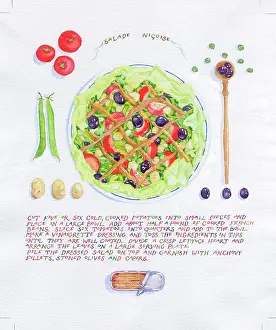 SALADE NIÇOISE
CUT FIVE OR SIX COLD, COOKED POTATOES INTO SMALL PIECES AND
PLACE IN A LARGE BOWL. ADD ABOUT HALF A POUND OF COOKED FRENCH
BEANS. SLICE SIX TOMATOES INTO QUARTERS AND ADD TO THE BOWL.
MAKE A VINAIGRETTE DRESSING AND TOSS THE INGREDIENTS IN THIS
UNTIL THEY ARE WELL COATED. DIVIDE A CRISP LETTUCE HEART AND
ARRANGE THE LEAVES ON A LARGE SERVING PLATE.
PILE THE DRESSED SALAD ON TOP AND GARNISH WITH ANCHOVY
FILLETS, STONED OLIVES AND CAPERS.